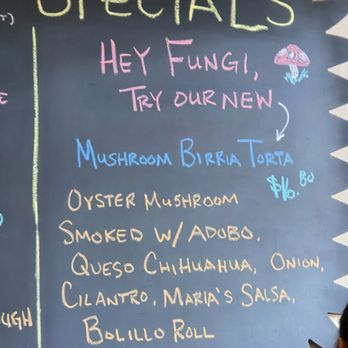 SPECIALS
HEY FUNGI,
TRY OUR NEW
MUSHROOM BIRRIA TORTA
$16.80
OYSTER MUSHROOM
SMOKED W/ ADOBO,
QUESO CHIHUAHUA, ONION,
CILANTRO, MARIA'S SALSA,
BOLILLO ROLL